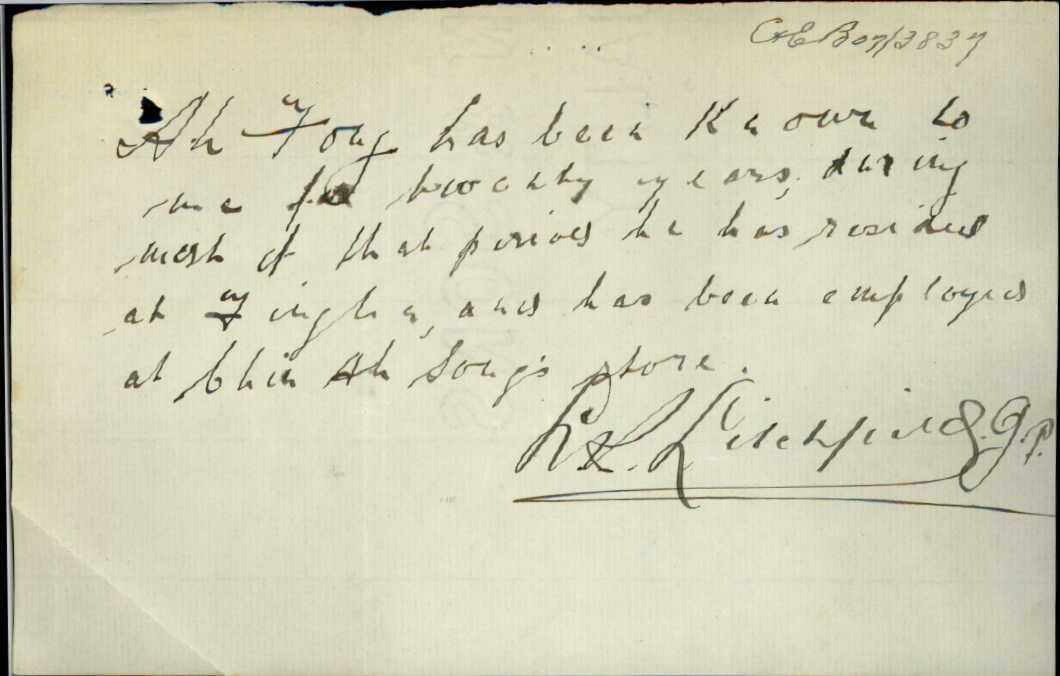 C&E B07/3837
Ah Fong has been known to
me for twenty years, during
most of that period he has resided
at Tingha, and has been employed
at Chin Ah Song's store.
Litchfield. J.P.